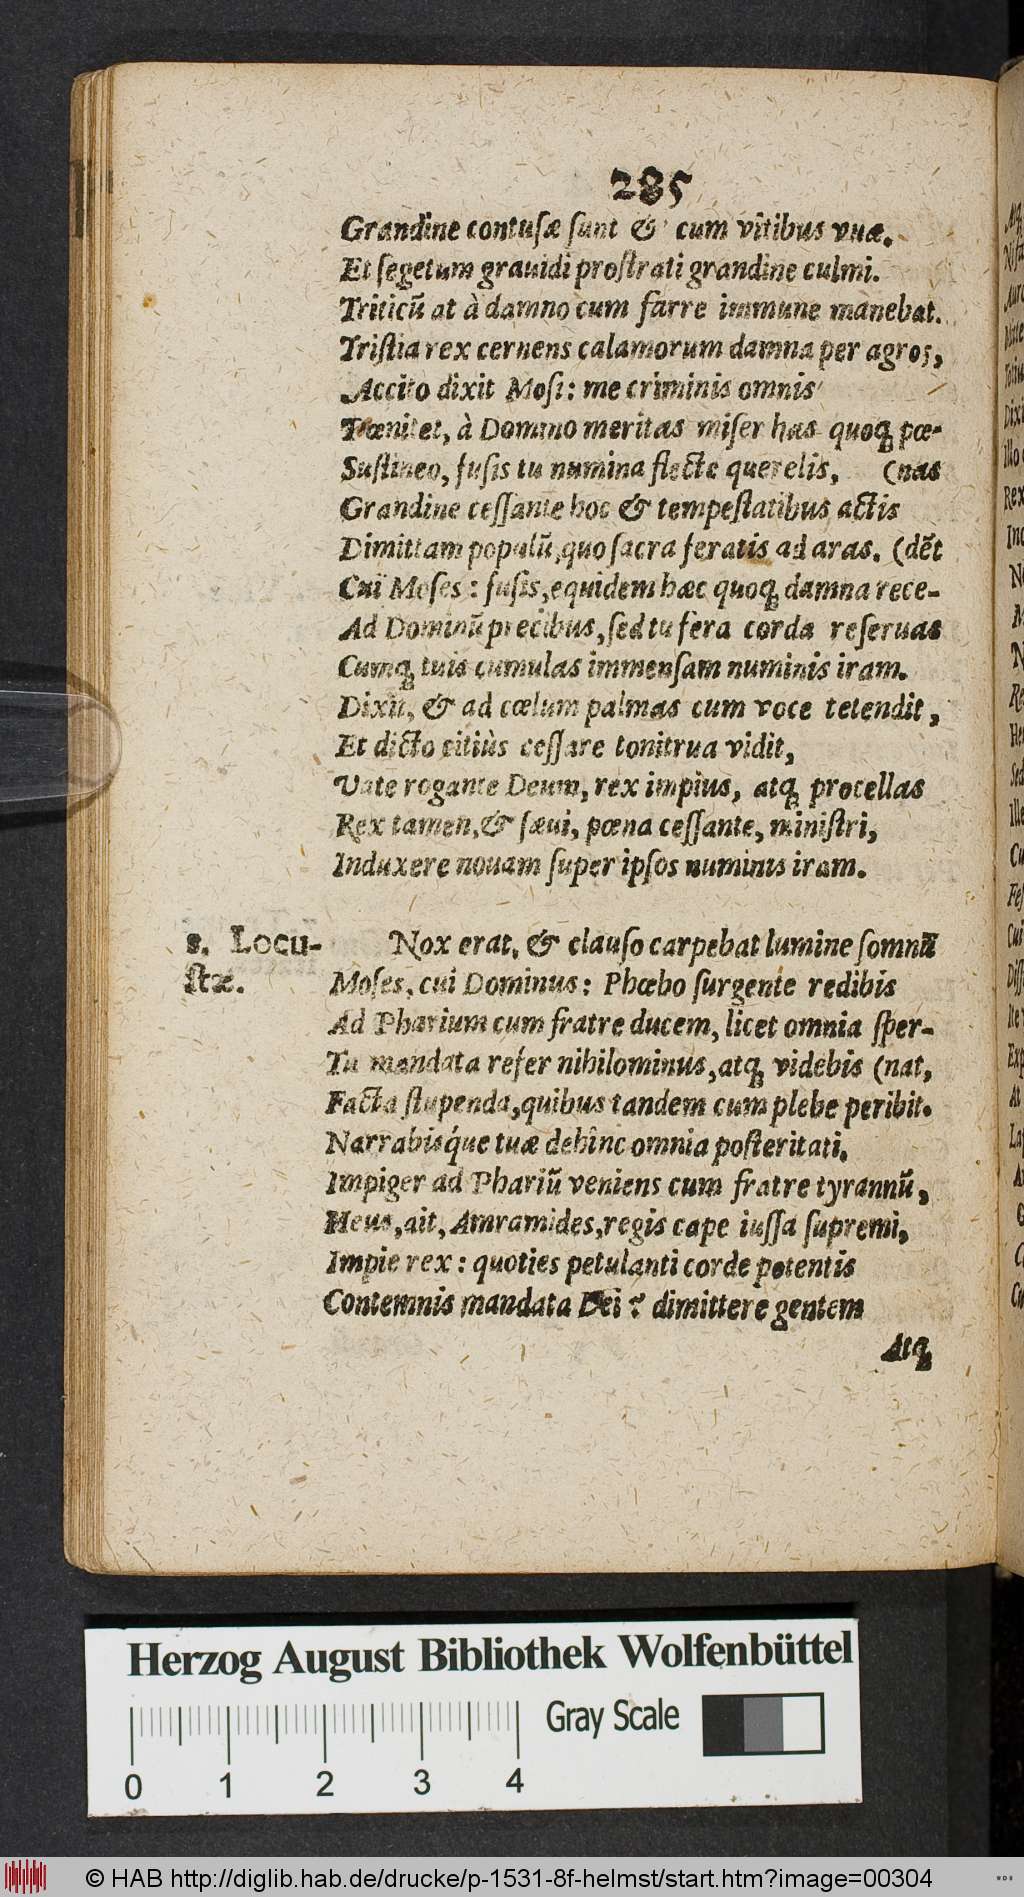 285
Grandine contuſæ ſunt & cum vitibus vuæ.
Et ſegetum grauidi proſtrati grandine culmi.
Triticū at à damno cum farre immune manebat.
Triſtia rex cernens calamorum damna per agros,
Accito dixit Moſi: me criminis omnis
Pœnitet, à Domino meritas miſer has quoq; pœ-
Suſtineo, fuſis tu numina flecte querelis, (nas
Grandine ceſſante hoc & tempeſtatibus actis
Dimittam populū, quo ſacra feratis ad aras. (dēt
Cui Moſes: fuſis, equidem hæc quoq; damna rece-
Ad Dominū precibus, ſed tu fera corda reſeruas
Cumq; tuis cumulas immenſam numinis iram.
Dixit, & ad cœlum palmas cum voce tetendit,
Et dicto citiùs ceſſare tonitrua vidit,
Vate rogante Deum, rex impius, atq; procellas
Rex tamen, & ſæui, pœna ceſſante, miniſtri,
Induxere nouam ſuper ipſos numinis iram.
8. Locu-
ſtæ.
Nox erat, & clauſo carpebat lumine ſomnū
Moſes, cui Dominus: Phœbo ſurgente redibis
Ad Pharium cum fratre ducem, licet omnia ſper-
Tu mandata refer nihilominus, atq; videbis (nat,
Facta ſtupenda, quibus tandem cum plebe peribit.
Narrabisq́ue tuæ dehinc omnia poſteritati.
Impiger ad Phariū veniens cum fratre tyrannū,
Heus, ait, Amramides, regis cape iuſſa ſupremi,
Impie rex: quoties petulanti corde potentis
Contemnis mandata Dei? dimittere gentem
Atq;
Herzog August Bibliothek Wolfenbüttel
Gray Scale
0 1 2 3 4
© HAB http://diglib.hab.de/drucke/p-1531-8f-helmst/start.htm?image=00304